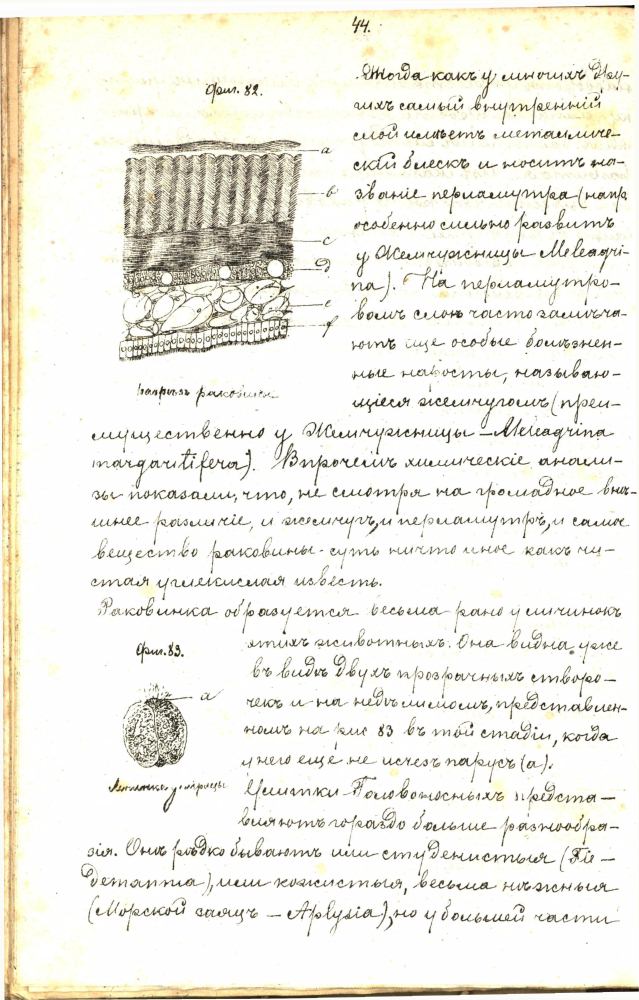 44.
Фиг. 82.
Тогда какъ у многихъ дру-
гихъ самый внутренній
слой имѣетъ металличе-
скій блескъ и носитъ на-
званіе перламутра (напр.
особенно сильно развитъ
у Жемчужницы Meleagri-
na). На перламутро-
вомъ слоѣ часто замѣча-
ютъ еще особые болѣзнен-
ные наросты, называю-
щіеся жемчугомъ (преи-
a
b
c
d
e
f
раковины
мущественно у Жемчужницы - Meleagrina
margaritifera). Впрочемъ химическіе анали-
зы показали, что, не смотря на громадное внѣ-
шнее различіе, и жемчугъ, и перламутръ, и самое
вещество раковины - суть ничто иное какъ чи-
стая углекислая известь.
Раковинка образуется весьма рано у личинокъ
этихъ животныхъ. Она видна уже
въ видѣ двухъ прозрачныхъ створо-
чекъ и на недѣлимомъ, представлен-
номъ на рис 83 въ той стадіи, когда
у него ещё не исчезъ парусъ (a).
Фиг. 83.
a
Личинка устрицы
Улитки Головоносныхъ предста-
вляютъ гораздо больше разнообра-
зія. Онѣ рѣдко бываютъ или студенистыя (Tie-
demannia), или кожистыя, весьма нѣжныя
(Морской заяцъ - Aplysia), но у большей части